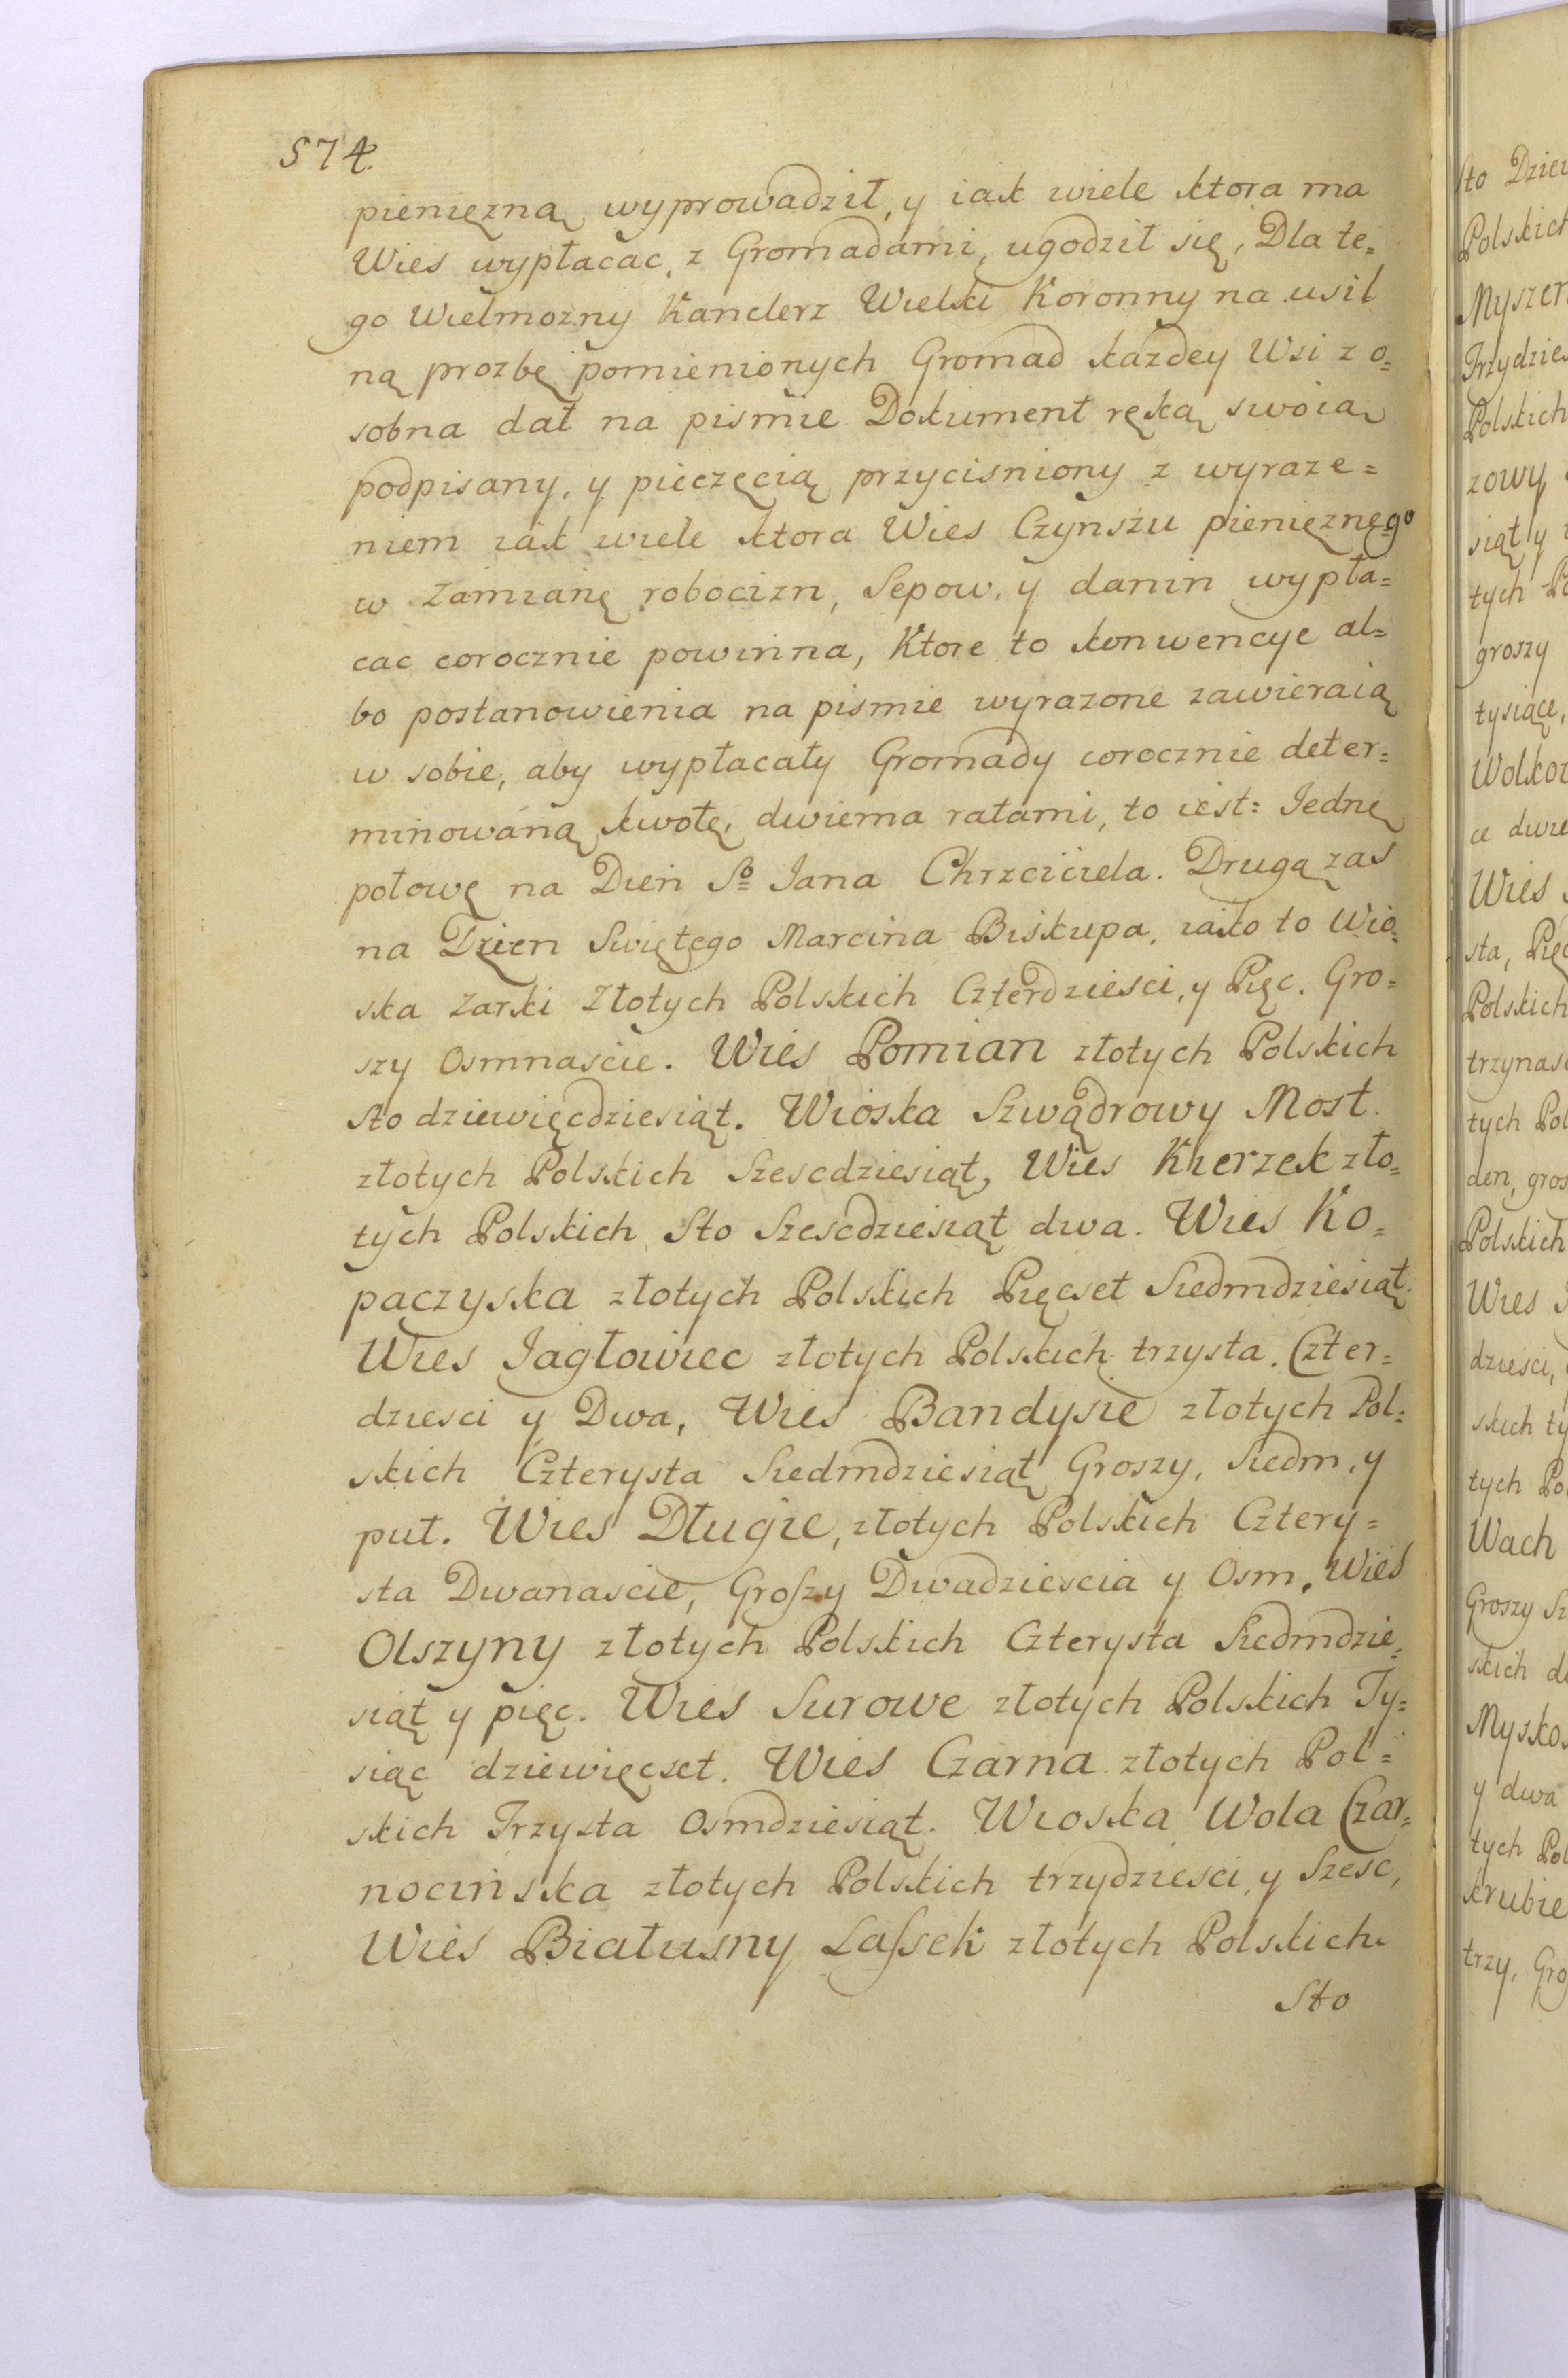 574.
pieniężną wyprowadził, y iak wiele ktora ma
Wies wypłacac, z Gromadami, ugodził się, Dla te=
go Wielmozny Kanclerz Wielki Koronny na usil
ną prozbę pomienionych Gromad kazdey Wsi z o=
sobna dał na pismie Dokument ręką swoią
podpisany, y pieczęcią przycisniony z wyraze=
niem iak wiele ktora Wies Czynszu pienięznego
w zamianę robocizn, Sepow, y danin wypła=
cac corocznie powinna, Ktore to konwencye al=
bo postanowienia na pismie wyrazone zawieraią
w sobie, aby wypłacały Gromady corocznie deter=
minowaną kwotę, dwiema ratami, to iest: Iednę
połowę na Dzien So Jana Chrzciciela. Drugą zas
na Dzien Swiętego Marcina Biskupa, iako to Wio=
ska Zarki Złotych Polskich Czterdziesci, y Pięc. Gro=
szy Osmnascie. Wies Pomian złotych Polskich
sto dziewięcdziesiąt. Wioska Szwądrowy Most
złotych Polskich Szescdziesiąt, Wies Kierzek zło=
tych Polskich Sto Szescdziesiąt dwa. Wies Ko=
paczyska złotych Polskich Pięcset Siedmdziesiąt.
Wies Jagłowiec złotych Polskich trzysta. Czter=
dziesci y Dwa, Wies Bandysie złotych Pol=
skich Czterysta Siedmdziesiąt Groszy, Siedm, y
puł. Wies Długie, złotych Polskich Cztery=
sta Dwanascie, Groszy Dwadziescia y Osm, Wies
Olszyny złotych Polskich Czterysta Siedmdzie=
siąt y pięc. Wies Surowe złotych Polskich Ty=
siąc dziewięcset. Wies Czarna złotych Pol=
skich Trzysta Osmdziesiąt. Wioska Wola Czar=
nocinska złotych Polskich trzydziesci, y Szesc,
Wies Białusny Lassek złotych Polskich
Sto
Sto
Polskich
Myszer
Trzydzies
Polskich
zowy
siąt y
tych
groszy
tysiące,
Wolkow
ce dwie
Wies
sta, Pięc
Polskich
trzynasc
tych Pol
den, gros
Polskich
Wies
dziesci,
skich ty
tych Pol
Wach
Groszy Sz
skich d
Mysko
y dwa
tych Pol
krubie
trzy, Gro